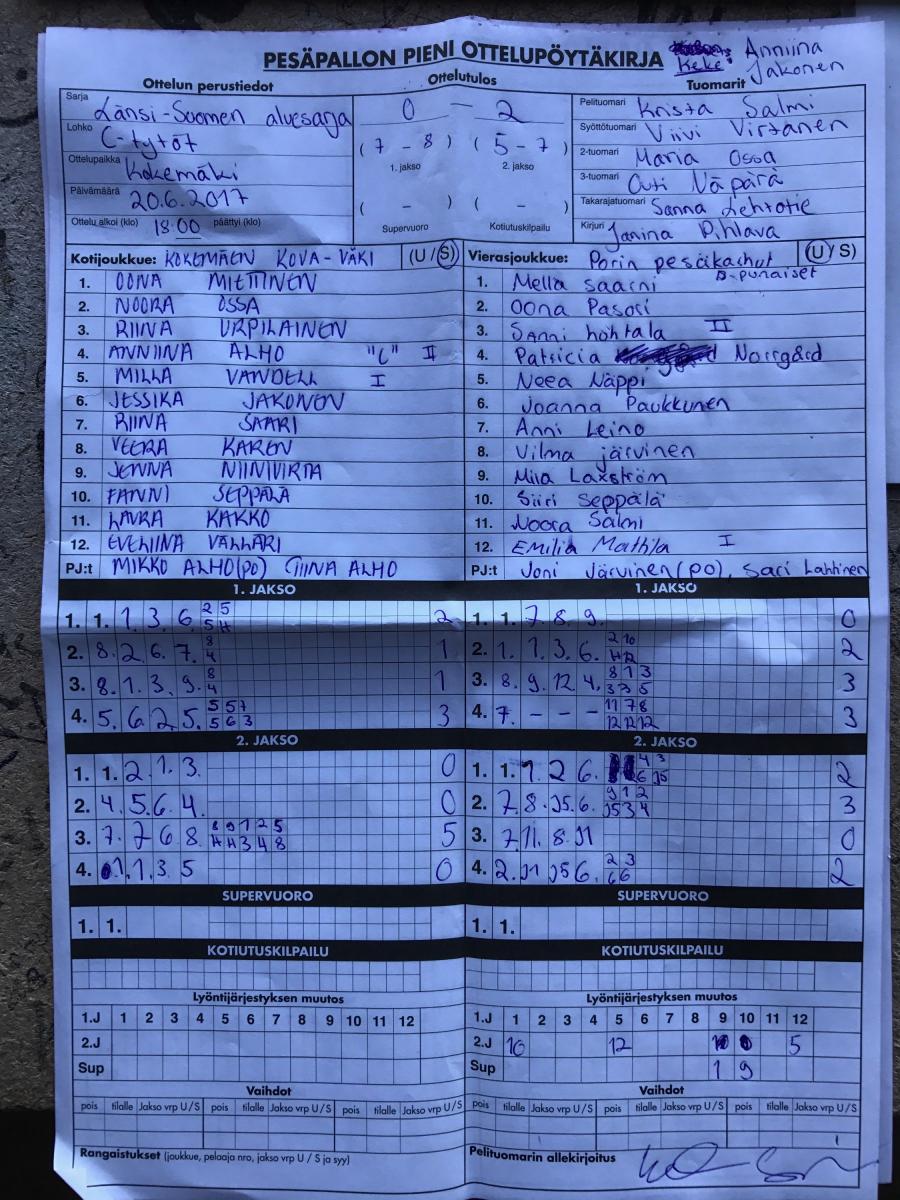 PESÄPALLON PIENI OTTELUPÖYTÄKIRJA
Keke: Anniina Jakonen
Ottelun perustiedot
Ottelutulos
Tuomarit
Sarja Länsi-Suomen aluesarja
Lohko C-tytöt
Ottelupaikka Kokemäki
Päivämäärä 20.6.2017
Ottelu alkoi (klo) 18:00 päättyi (klo)
0 – 2
(7 - 8) (5 - 7)
1. jakso 2. jakso
( - ) ( - )
Supervuoro Kotiutuskilpailu
Pelituomari Krista Salmi
Syöttötuomari Viivi Virtanen
2-tuomari Maria Ossa
3-tuomari Outi Näpärä
Takarajatuomari Sanna Lehtotie
Kirjuri Janina Pihlava
Kotijoukkue: KOKEMÄEN KOVA-VÄKI (U/S)
1. OONA MIETTINEN
2. NOORA OSSA
3. RIINA URPILAINEN
4. ANNIINA ALHO "C" II
5. MILLA VANDELL I
6. JESSIKA JAKONEN
7. RIINA SAARI
8. VEERA KAREN
9. JENNA NIINIVIRTA
10. FANNI SEPPÄLÄ
11. LAURA KAKKO
12. EVELIINA VALLARI
PJ:t MIKKO ALHO(PO) TIINA ALHO
Vierasjoukkue: Porin pesäkarhut (U/S)
B-punaiset
1. Mella Saarni
2. Oona Pasori
3. Sanni hohtala II
4. Patricia Norrgård
5. Neea Näppi
6. Joanna Paukkunen
7. Anni Leino
8. Vilma järvinen
9. Miia Laxström
10. Siiri Seppälä
11. Noora Salmi
12. Emilia Mattila I
PJ:t Joni Järvinen(po), Sari Lahtinen
1. JAKSO
1. 1. 1. 3. 6. 2 5 2
5 H
2. 8. 2. 6. 7. 8 1
4
3. 8. 1. 3. 9. 8 1
4
4. 5. 6 2 5. 5 5 7 3
5 6 3
2. JAKSO
1. 1. 2. 1. 3. 0
2. 4. 5. 6 4. 0
3. 7. 7 6 8. 8 9 1 2 5 5
H H 3 4 8
4. 1. 1. 3. 5 0
SUPERVUORO
1. 1.
KOTIUTUSKILPAILU
Lyöntijärjestyksen muutos
1.J 1 2 3 4 5 6 7 8 9 10 11 12
2.J
Sup
Vaihdot
pois tilalle Jakso vrp U/S pois tilalle Jakso vrp U/S pois tilalle Jakso vrp U/S
Rangaistukset (joukkue, pelaaja nro, jakso vrp U / S ja syy)
1. JAKSO
1. 1. 7. 8. 9. 0
2. 1. 1. 3. 6. 2 10 2
H 12
3. 8. 9. 12 4. 8 1 3 3
3 3 5
4. 7. – – – 11 7 8 3
12 12 12
2. JAKSO
1. 1. 1. 2 6. 4 3 2
6 J5
2. 7. 8. J5. 6. 9 1 2 3
J5 3 4
3. 7. 11. 8. J1 0
4. 2. J1 J5 6. 2 3 2
6 6
SUPERVUORO
1. 1.
KOTIUTUSKILPAILU
Lyöntijärjestyksen muutos
1.J 1 2 3 4 5 6 7 8 9 10 11 12
2.J 10 12 5
Sup 1 9
Vaihdot
pois tilalle Jakso vrp U/S pois tilalle Jakso vrp U/S pois tilalle Jakso vrp U/S
Pelituomarin allekirjoitus